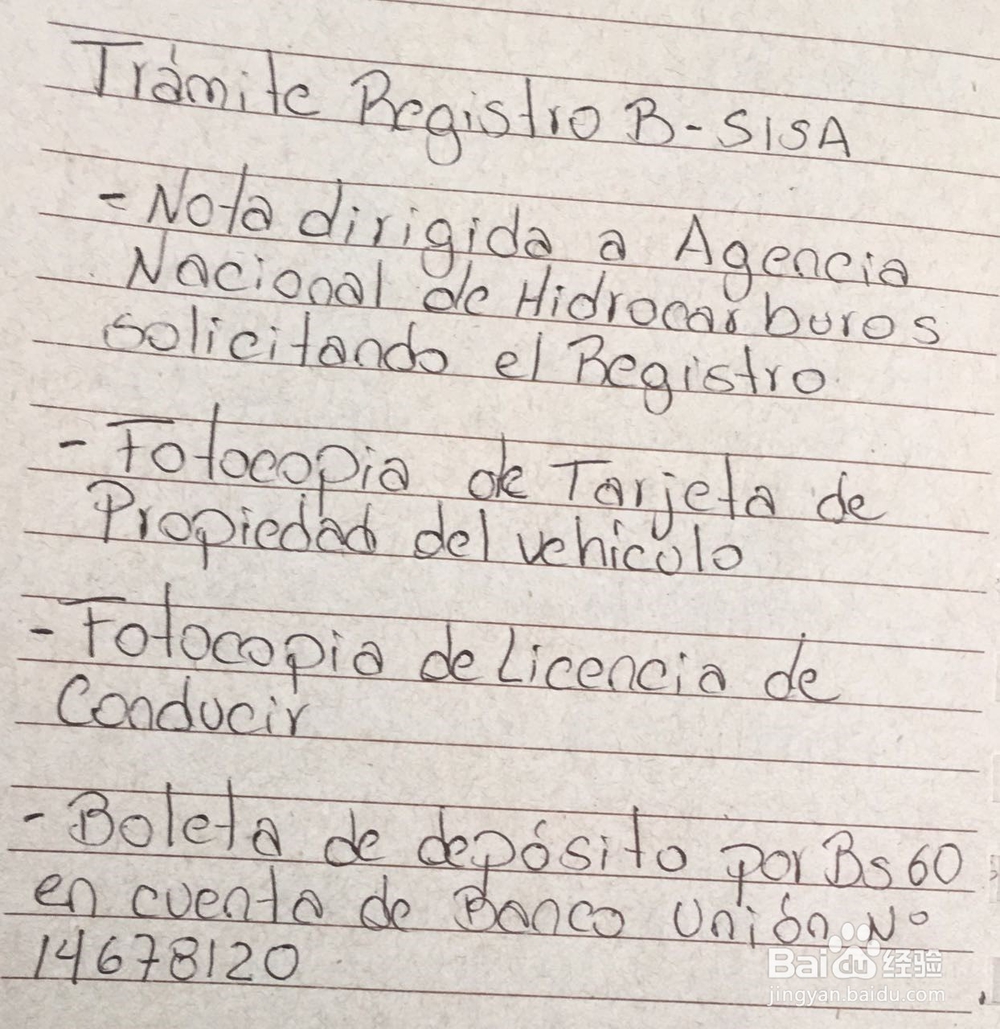 Trámite Registro B-SISA
- Nota dirigida a Agencia
Nacional de Hidrocarburos
solicitando el Registro
- Fotocopia de Tarjeta de
Propiedad del vehiculo
- Fotocopia de Licencia de
Conducir
- Boleta de depósito por Bs 60
en cuenta de Banco Unión Nº
14678120
Baidu经验
jingyan.baidu.com